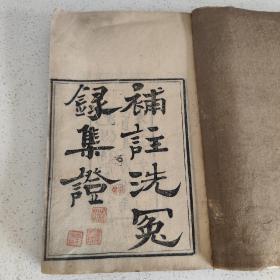 補註洗冤
録集證